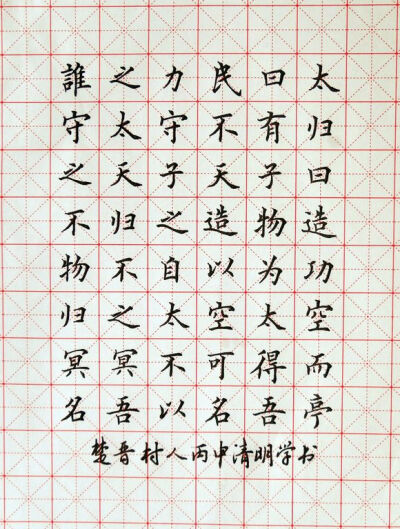 誰之力民曰太
守太守不有归
之天子天子曰
不归之造物造
物不自以为功
归之太空太空
冥冥不可得而
名吾以名吾亭
楚晋村人丙申清明学书